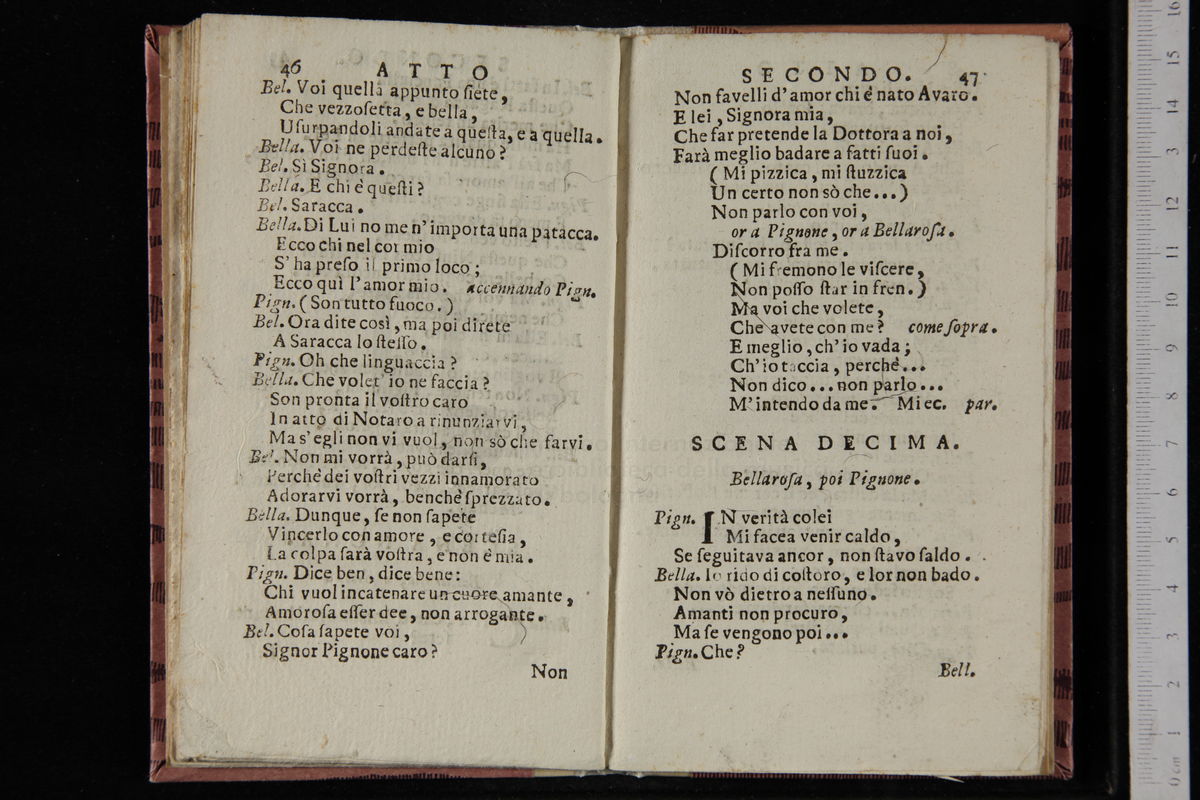 46 ATTO
Bel. Voi quella appunto ſiete,
Che vezzoſetta, e bella,
Uſurpandoli andate a queſta, e a quella.
Bella. Voi ne perdeſte alcuno?
Bel. Sì Signora.
Bella. E chi è queſti?
Bel. Saracca.
Bella. Di Lui no me n' importa una patacca.
Ecco chi nel cor mio
S' ha preſo il primo loco;
Ecco quì l' amor mio. accennando Pign.
Pign. (Son tutto fuoco.)
Bel. Ora dite così, ma poi direte
A Saracca lo ſteſſo.
Pign. Oh che linguaccia?
Bella. Che volet' io ne faccia?
Son pronta il voſtro caro
In atto di Notaro a rinunziarvi,
Ma s' egli non vi vuol, non sò che farvi.
Bel. Non mi vorrà, può darſi,
Perchè dei voſtri vezzi innamorato
Adorarvi vorrà, benchè ſprezzato.
Bella. Dunque, ſe non ſapete
Vincerlo con amore, e corteſia,
La colpa ſarà voſtra, e non è mia.
Pign. Dice ben, dice bene:
Chi vuol incatenare un cuore amante,
Amoroſa eſſer dee, non arrogante.
Bel. Coſa ſapete voi,
Signor Pignone caro?
Non
SECONDO. 47
Non favelli d' amor chi è nato Avaro.
E lei, Signora mia,
Che far pretende la Dottora a noi,
Farà meglio badare a fatti ſuoi.
(Mi pizzica, mi ſtuzzica
Un certo non sò che...)
Non parlo con voi,
or a Pignone, or a Bellaroſa.
Diſcorro fra me.
(Mi fremono le viſcere,
Non poſſo ſtar in fren.)
Ma voi che volete,
Che avete con me? come ſopra.
E meglio, ch' io vada;
Ch' io taccia, perchè...
Non dico... non parlo...
M' intendo da me. Mi ec. par.
SCENA DECIMA.
Bellaroſa, poi Pignone.
Pign. IN verità colei
Mi facea venir caldo,
Se ſeguitava ancor, non ſtavo ſaldo.
Bella. Io rido di coſtoro, e lor non bado.
Non vò dietro a neſſuno.
Amanti non procuro,
Ma ſe vengono poi...
Pign. Che?
Bell.